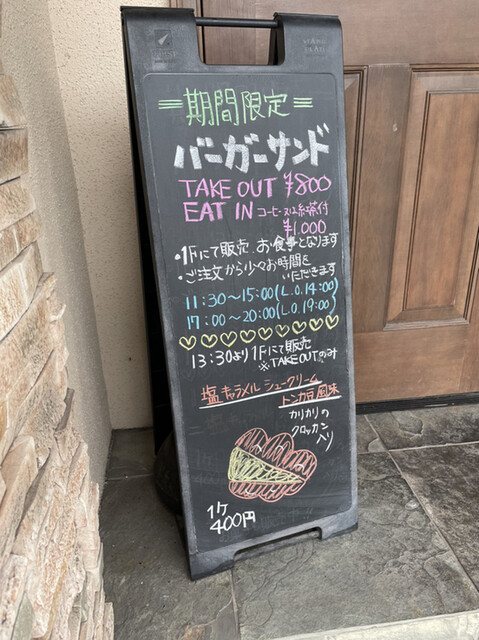 =期間限定=
バーガーサンド
TAKE OUT ¥800
EAT IN コーヒー又は紅茶付
¥1.000
・1Fにて販売、お食事となります
・ご注文から少々お時間を
いただきます
11:30～15:00(L.O.14:00)
17:00～20:00(L.O.19:00)
♡♡♡♡♡♡♡♡♡
13:30より1Fにて販売
※TAKE OUTのみ
塩キャラメル シュークリーム
トンカ豆風味
カリカリの
クロッカン
入り
1ケ
400円